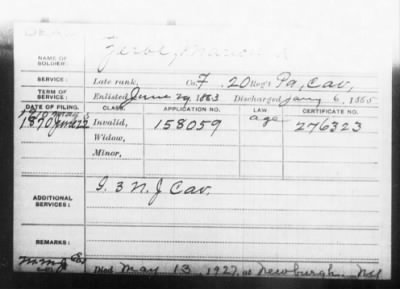 NAME OF SOLDIER:
SERVICE: Late rank, Co. F, 20 Reg't Pa, Cav,
TERM OF SERVICE: Enlisted June 29, 1863 Discharged Jany 6, 1865
DATE OF FILING. CLASS. APPLICATION NO. LAW. CERTIFICATE NO.
1870 June 22 Invalid, 158059 age 276323
Widow,
Minor,
ADDITIONAL SERVICES: I. 3 N. J Cav.
REMARKS:
Died May 13, 1927, at Newburgh, NY